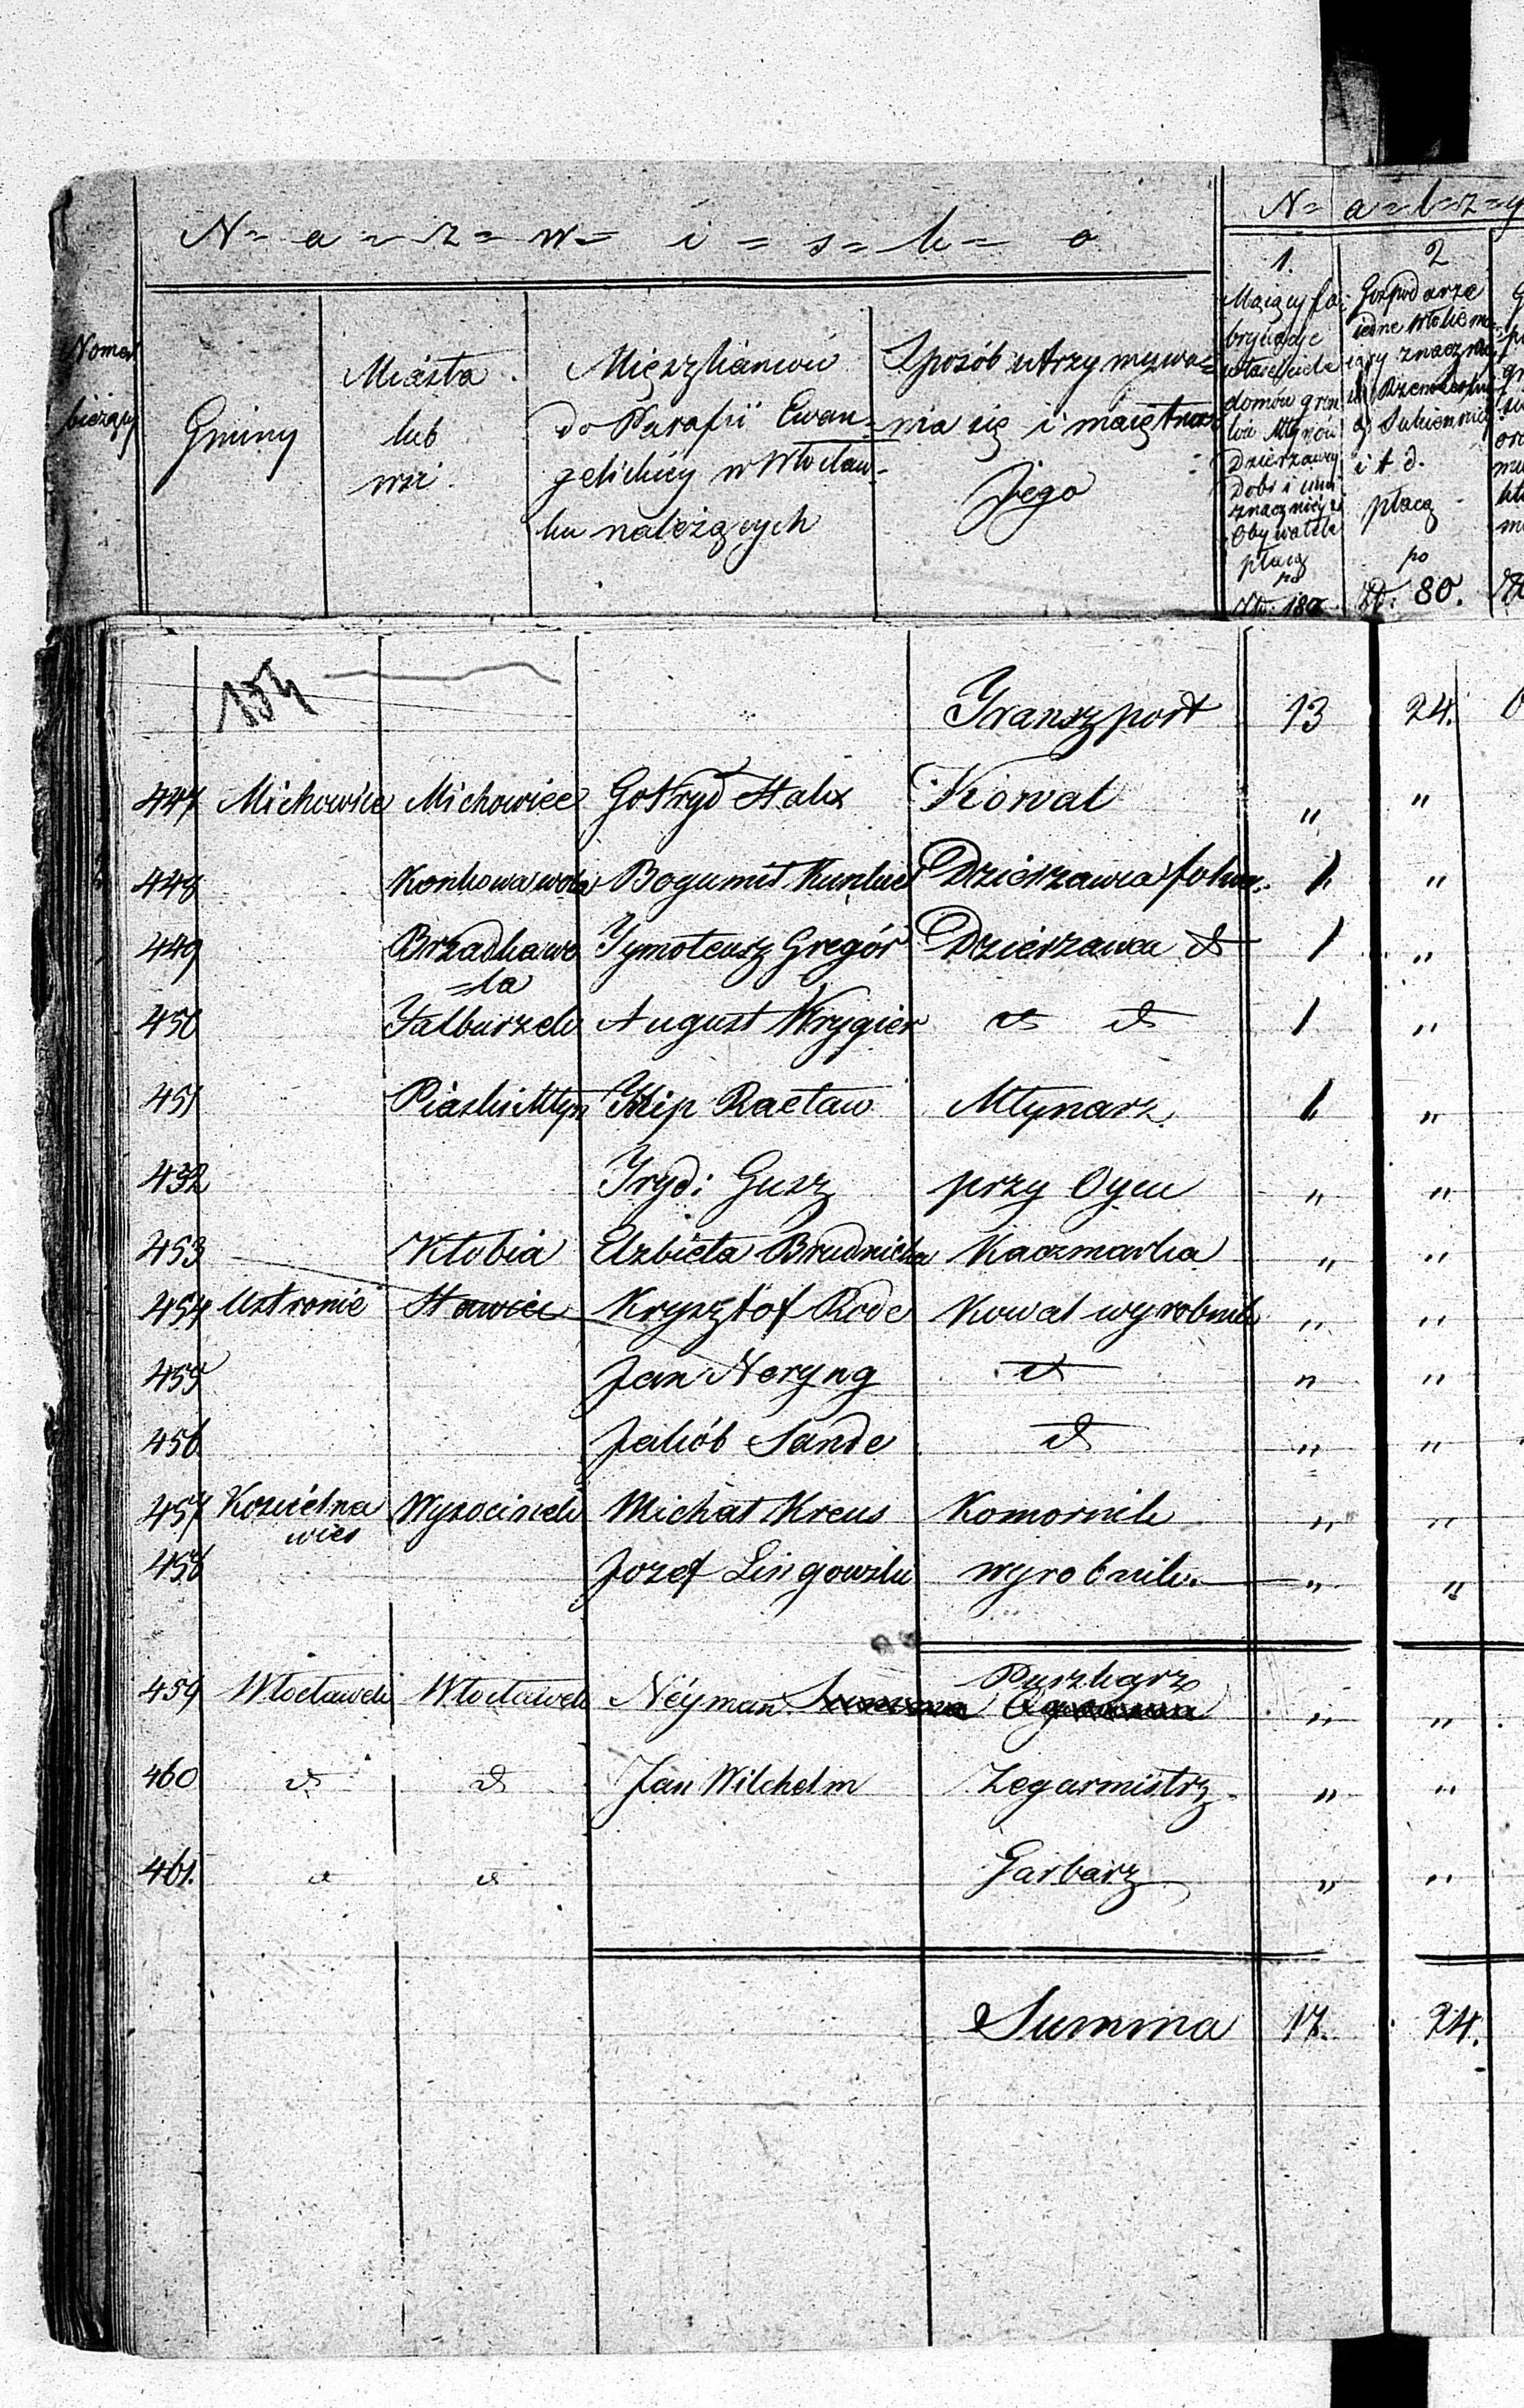 N=a=z=w=i=s=k=o
N=a=l=e=ż=y
Nomer bieżący
Gminy
Miasta lub wsi
Mięszkańców do Parafii Ewangelickiey w Włocławku należących
Sposób utrzymywania się i maiętność Jego
1.
domów
Młynów
Dzierżawcy
Dobr i inni
znacznieysi
Obywatele
płacą
po
180
2
Gospodarze
i t d.
płacą
po
Zł: 80.
154
Transzport 13 24.
447 Michowice Michowice Gotfryd Stalix Kowal " "
448 Konkowawola Bogumił Kunkiel Dzierzawca folw. 1 "
449 Brzadkawo=la Tymoteusz Gregór Dzierzawca d 1 "
450 Falburzek August Krygier d d 1 "
451 Piaski Młyn Filip Racław Młynarz 1 "
452 Fryd: Gusz przy Oycu " "
453 Kłobia Elzbieta Brudnicka Kaczmarka " "
454 Ustronie Stawiec Krysztof Rode Kowal wyrobnik " "
455 Jan Neryng d " "
456 Jakób Sande d " "
457 Kościelna wies Wysocinek Michał Kreus Komornik " "
458 Jozef Lingowski wyrobnik. " "
459 Włocławek Włocławek Neyman Puszkarz " "
460 d d Jan Wilchelm Zegarmistrz " "
461. d d Garbarz " "
Summa 17. 24.